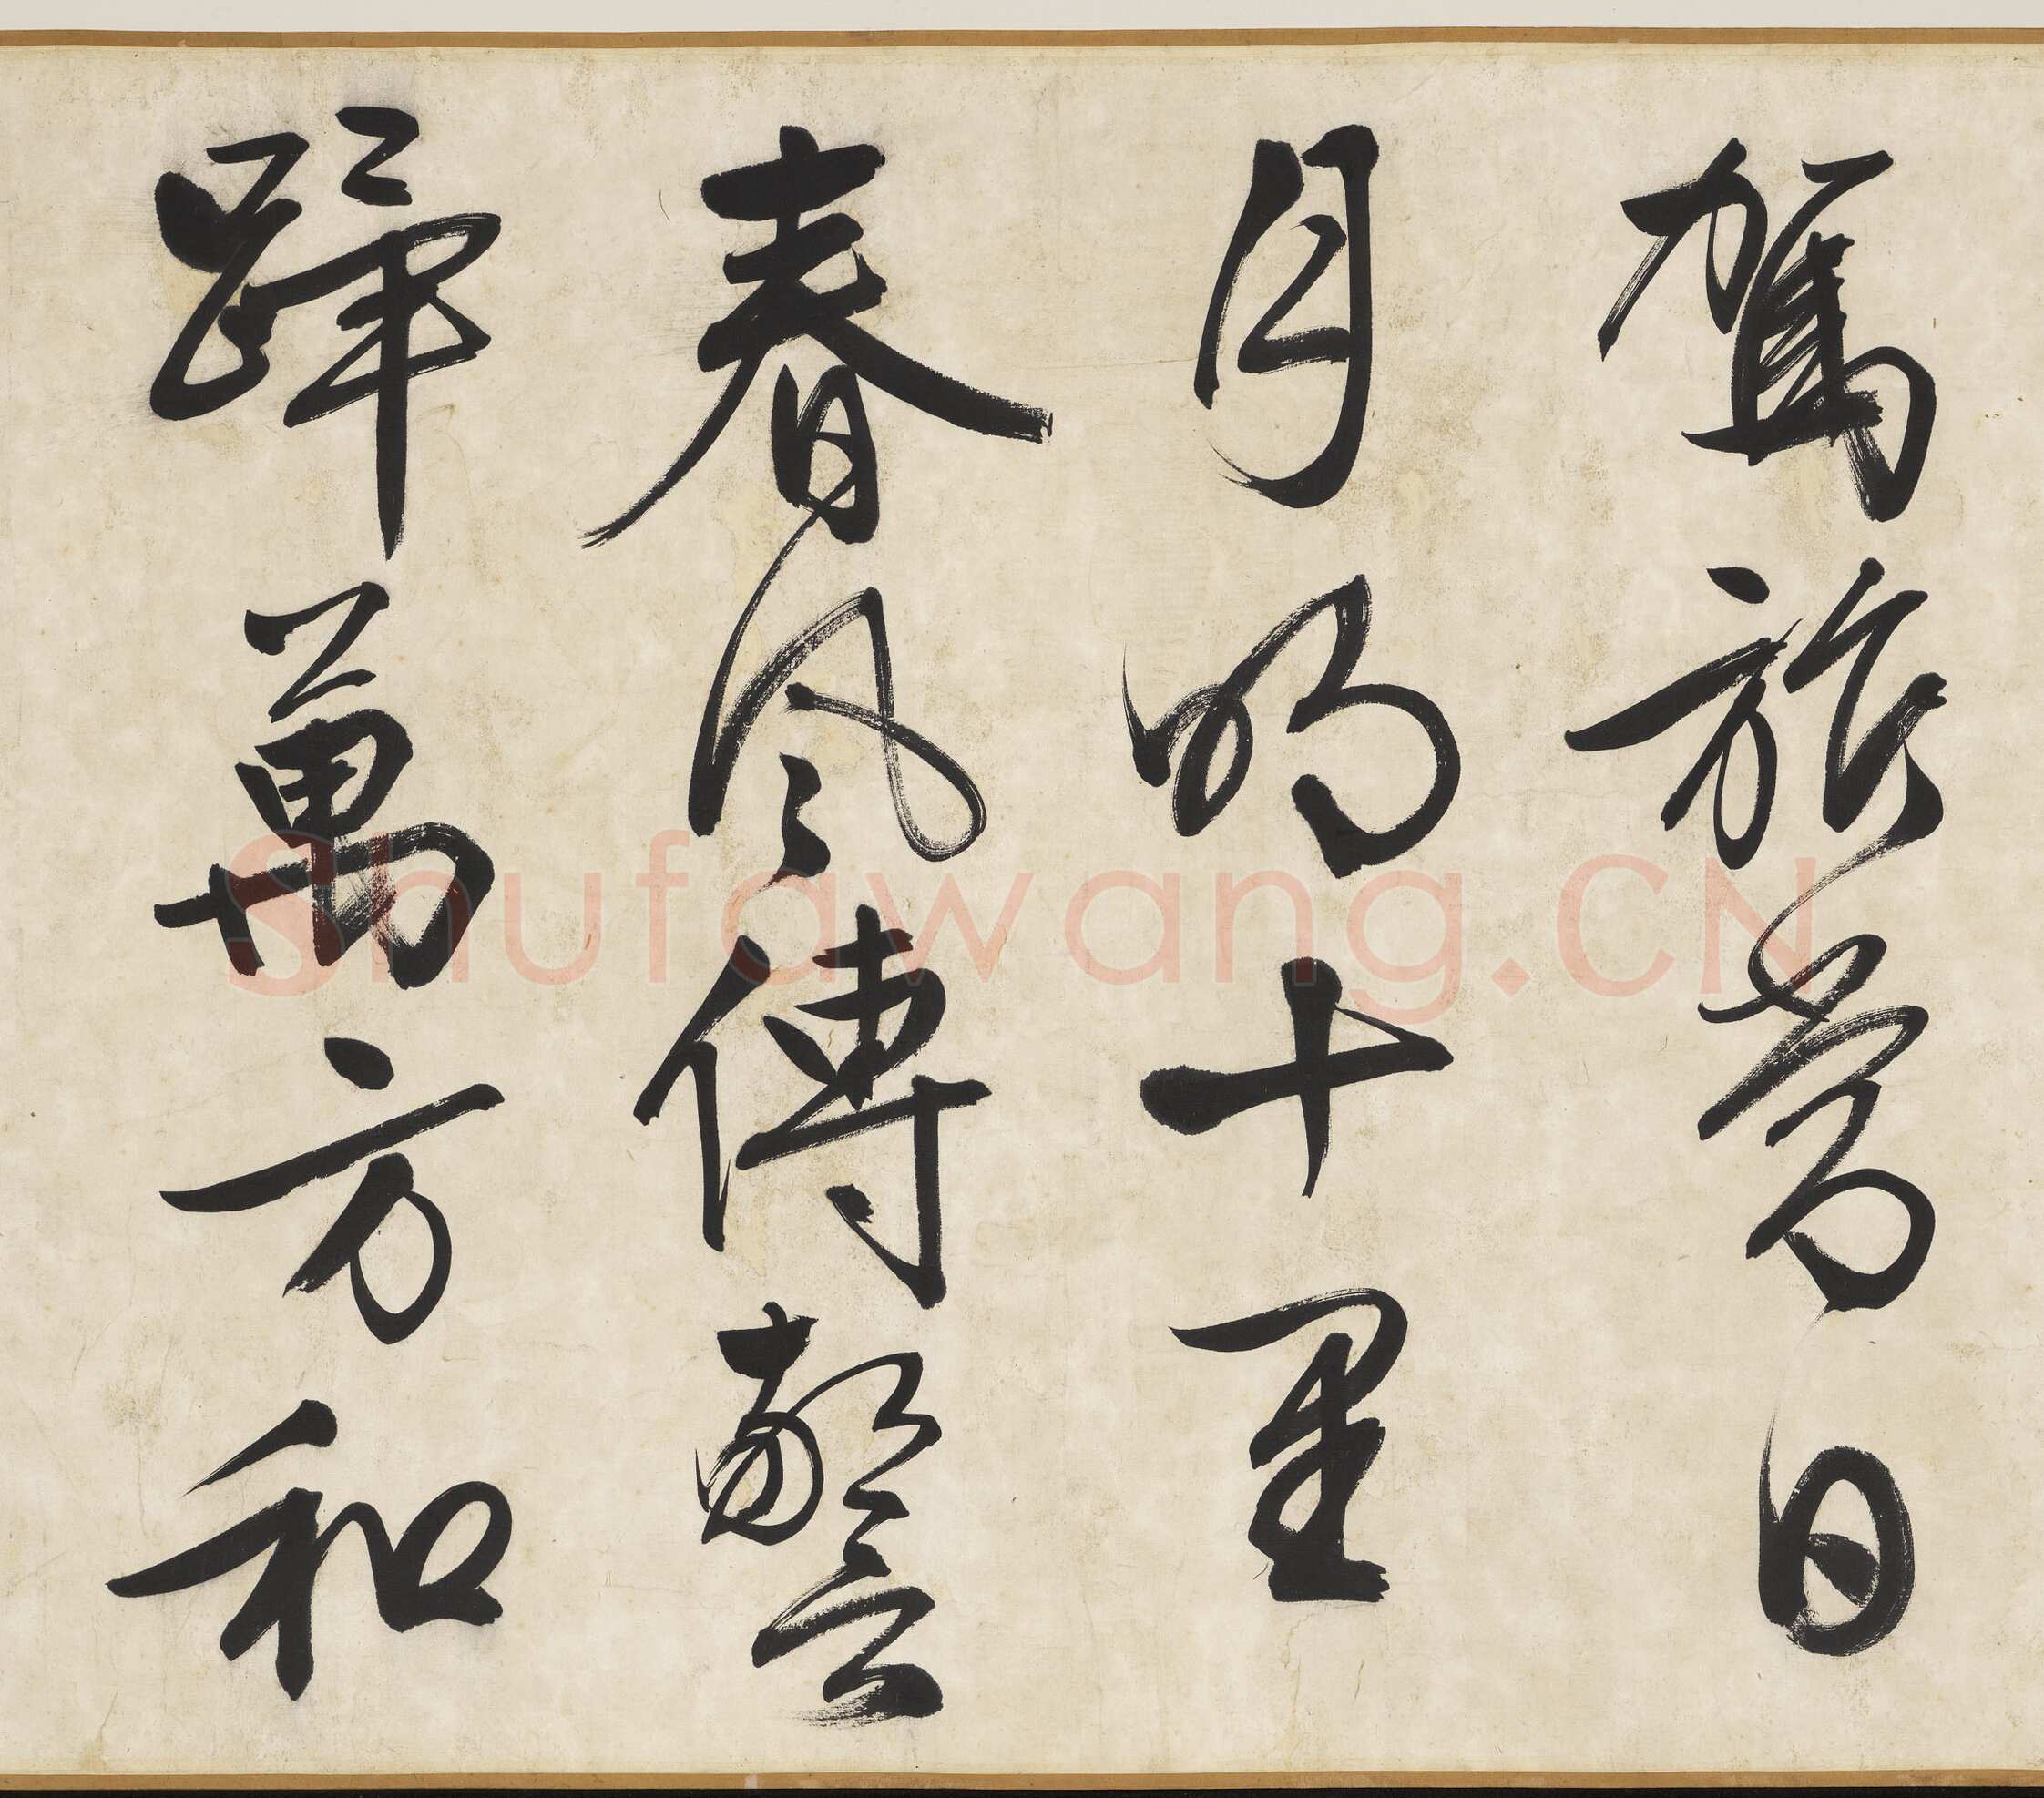 駕旂常日
月明十里
春風傳警
蹕萬方和
Shufawang.CN